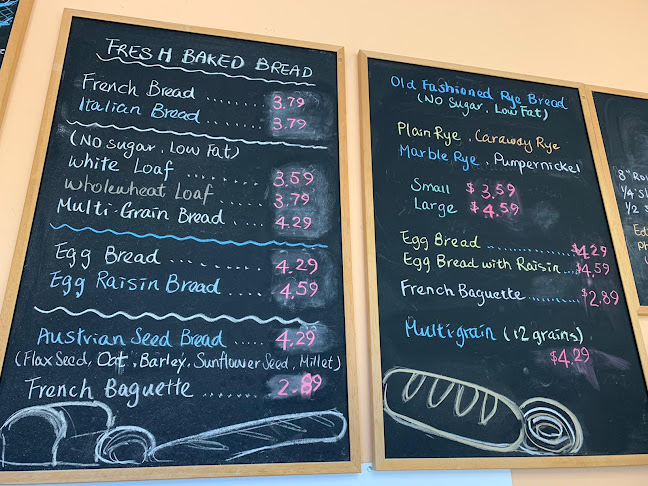 FRESH BAKED BREAD
French Bread ...... 3.79
Italian Bread ...... 3.79
(No sugar, Low Fat)
White Loaf ......... 3.59
Wholewheat Loaf .... 3.79
Multi-Grain Bread .... 4.29
Egg Bread ........... 4.29
Egg Raisin Bread .... 4.59
Austrian Seed Bread ..... 4.29
(Flax Seed, Oat, Barley, Sunflower Seed, Millet)
French Baguette ....... 2.89
Old Fashioned Rye Bread
(No Sugar, Low Fat)
Plain Rye, Caraway Rye
Marble Rye, Pumpernickel
Small $3.59
Large $4.59
Egg Bread ................ $4.29
Egg Bread with Raisin.... $4.59
French Baguette........... $2.89
Multigrain (12 grains)
$4.29
8"
1/4
1/2